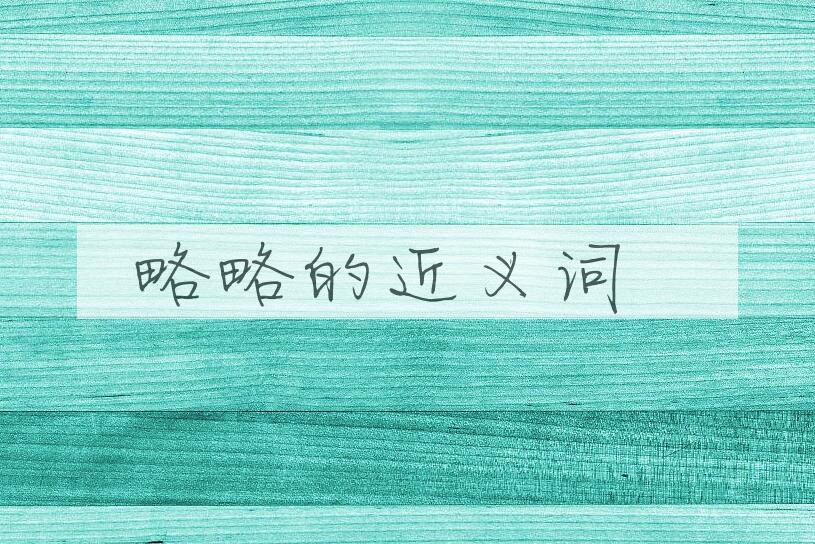 略略的近义词